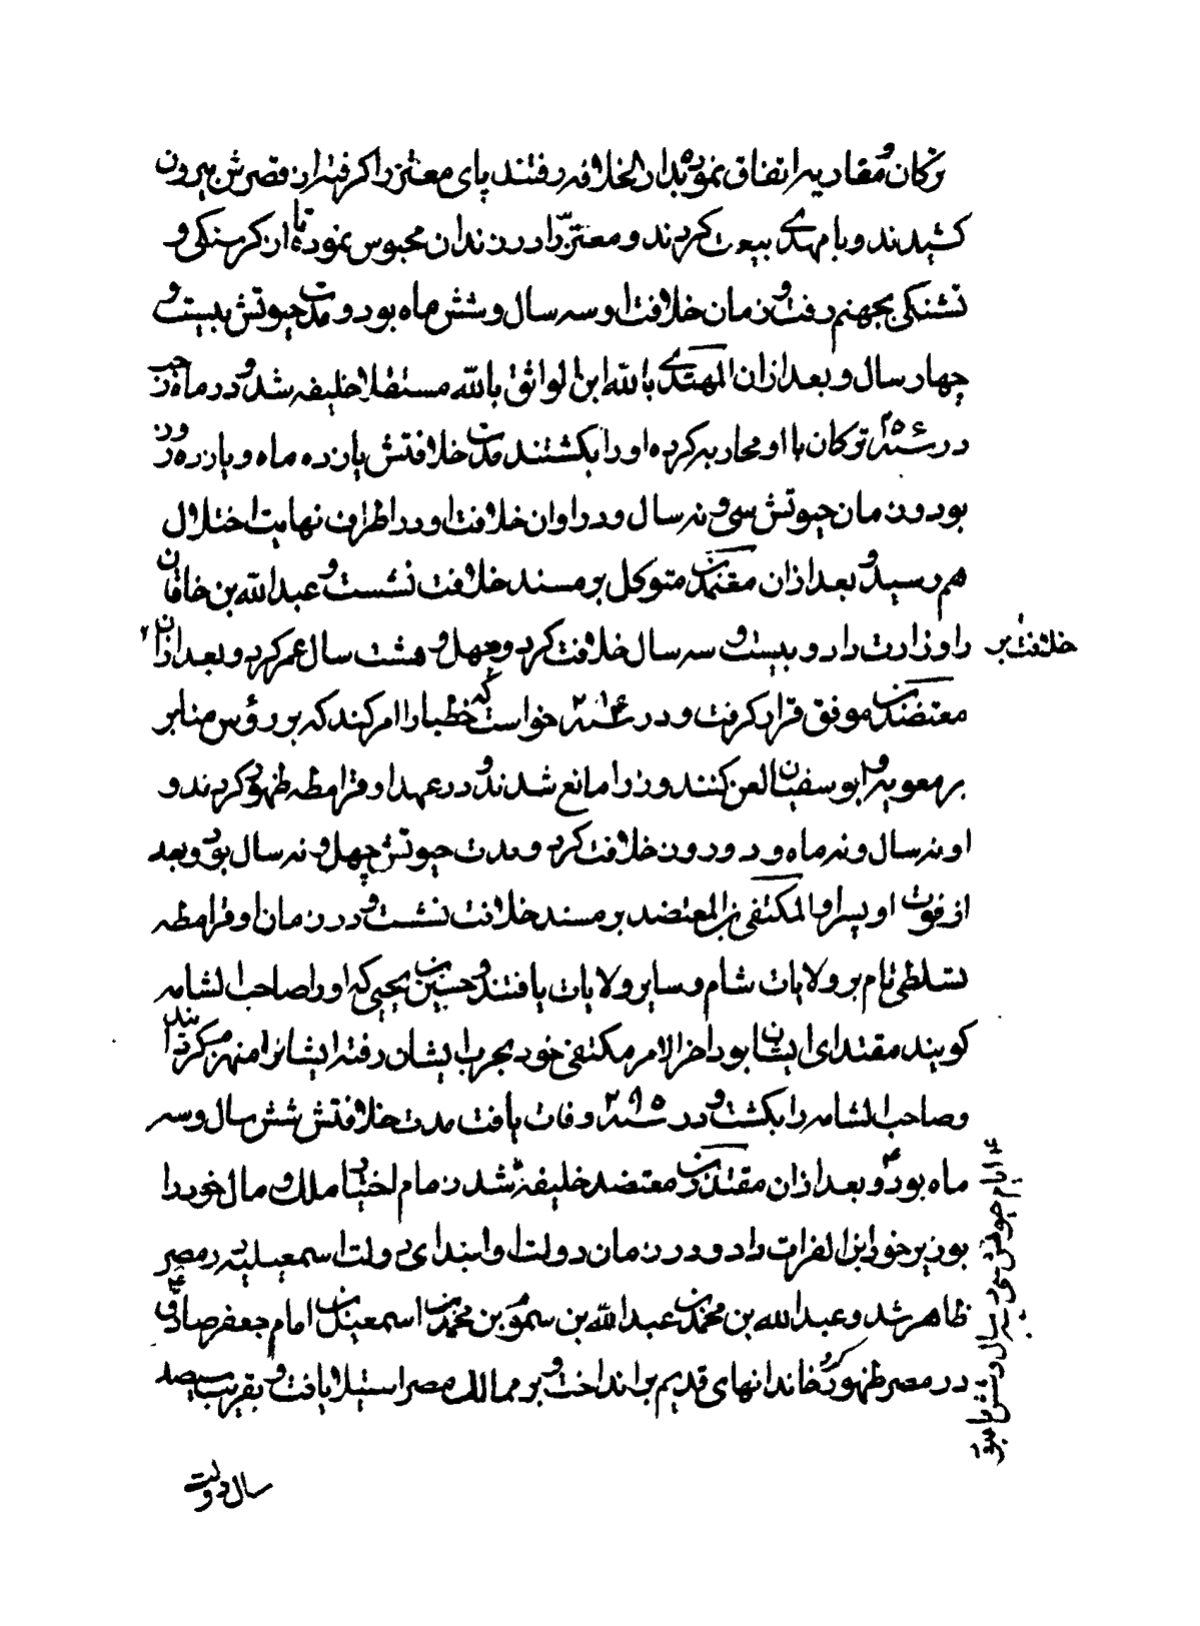 ترکان و مغاربه اتفاق نموده بدار الخلافه رفتند پای معتز را گرفته از قصرش بیرون
کشیدند و با مهتدی بیعت کردند و معتز را در زندان محبوس نموده تا از کرسنکی و
تشنکی بجهنم رفت و زمان خلافت او سه سال و شش ماه بود و مدت حیوتش بیست و
چهار سال و بعد ازان المهتدی بالله ابن الواثق بالله مستقلا خلیفه شد و در ماه رجب
در سنه ۲۵۶ ترکان با او محاربه کرده او را بکشتند مدت خلافتش یازده ماه و یازده روز
بود و زمان حیوتش سی و نه سال و در اوان خلافت او در اطراف نهایت اختلال
هم رسید و بعد ازان معتمد بن متوکل بر مسند خلافت نشست و عبدالله بن خاقان
را وزارت داد و بیست و سه سال خلافت کرد و چهل و هشت سال عمر کرد و بعد ازان ۲
خلافت بر
معتضد بن موفق قرار کرفت و در سنه ۲۸۴ خواست که خطبا را امر کند که بر رؤس منابر
بر معویه و ابو سفیان لعن کنند وزرا مانع شدند و در عهد او قرامطه ظهور کردند و
او نه سال و نه ماه و دو روز خلافت کرد و مدت حیوتش چهل و نه سال بود و بعد
از فوت او پسر او المکتفی بن المعتضد بر مسند خلافت نشست و در زمان او قرامطه
تسلطی تام بر ولایات شام و سایر ولایات یافتند و حسین بن یحیی که او را صاحب الشامه
کویند مقتدای ایشان بود اخر الامر مکتفی خود بحرب ایشان رفته ایشانرا منهزم کردانید
و صاحب الشامه را بکشت و در سنه ۲۹۵ وفات یافت مدت خلافتش شش سال و سه
ماه بود ۲ و بعد ازان مقتدر بن معتضد خلیفه شد زمام اختیار ملک و مال خود را
۴ ایام حیوتش سی و سه سال و شش ماه بود
بوزیر خود ابن الفرات داد و در زمان دولت او ابتدای دولت اسمعیلیه در مصر
ظاهر شد و عبدالله بن محمد بن عبدالله بن میمون بن محمد بن اسمعیل بن امام جعفر صادق ع
در مصر ظهور کرد خاندانهای قدیم بر انداخت و بر ممالک مصر استیلا یافت و بقریب سیصد
سال دولت